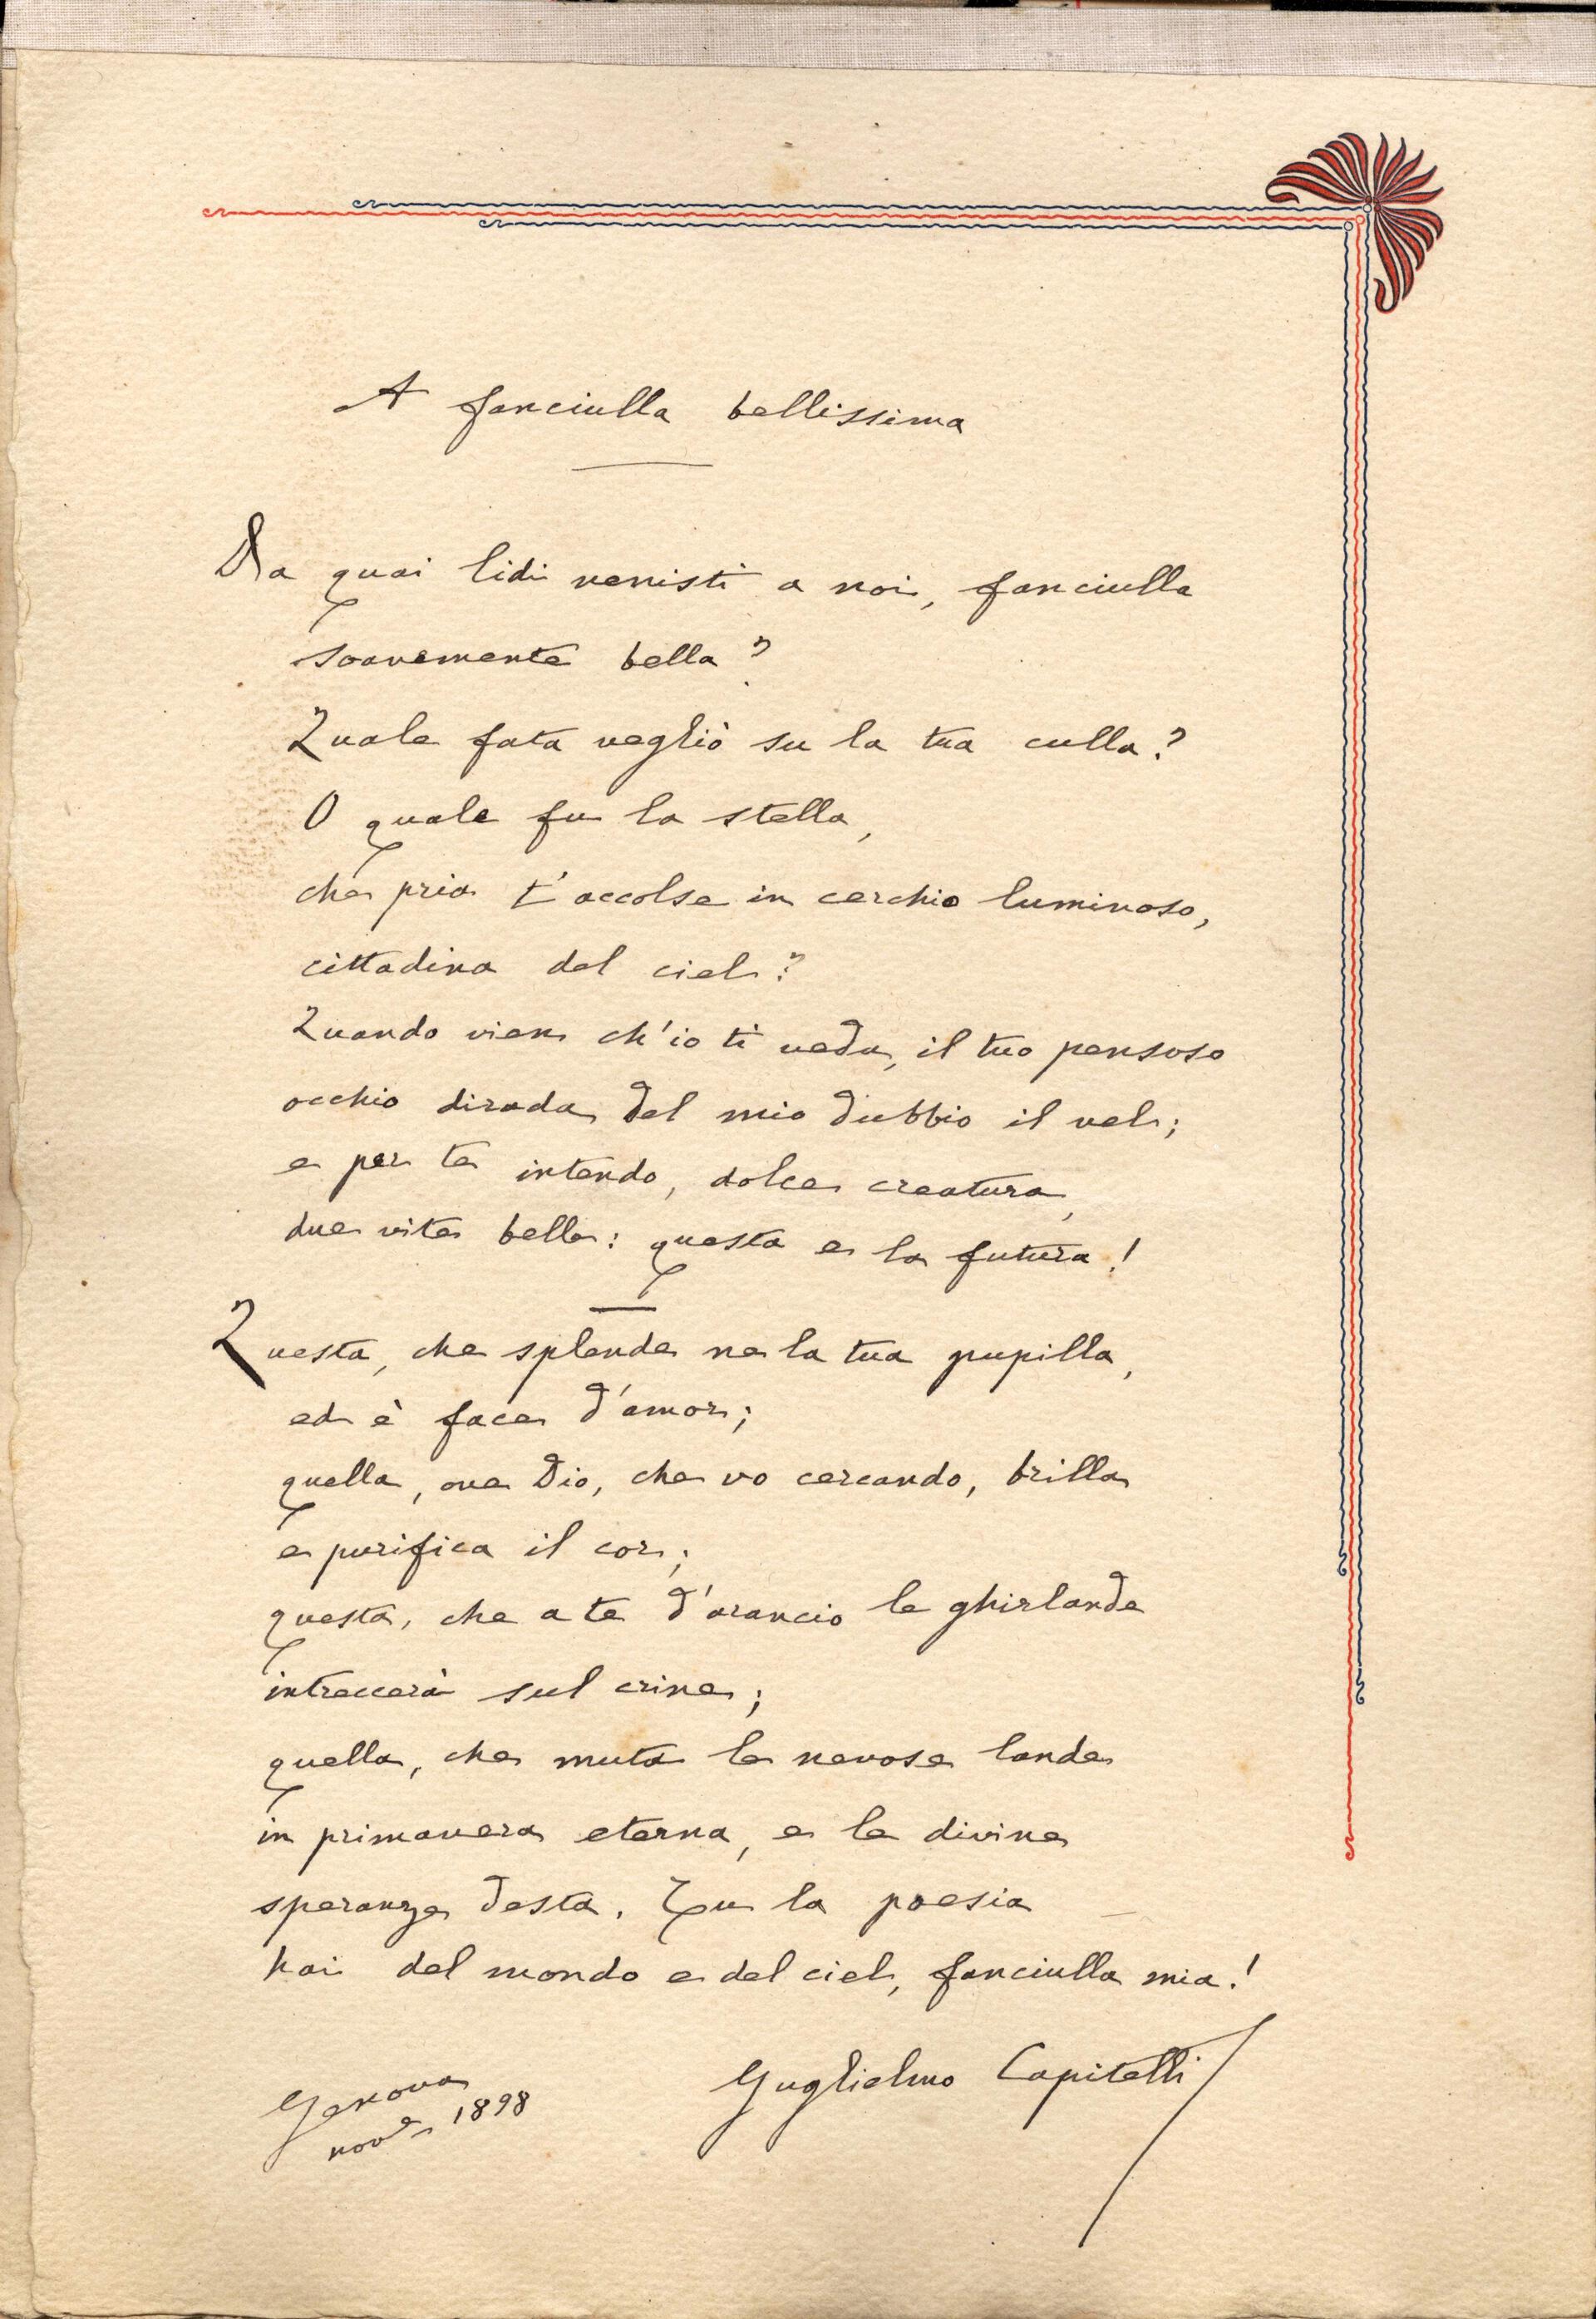 A fanciulla bellissima
Da quai lidi venisti a noi, fanciulla
soavemente bella?
Quale fata vegliò su la tua culla?
O quale fu la stella,
che pria t'accolse in cerchio luminoso,
cittadina del ciel?
Quando vien ch'io ti veda, il tuo pensoso
occhio dirada del mio dubbio il vel;
e per te intendo, dolce creatura,
due vite belle: questa e la futura!
Questa, che splende ne la tua pupilla,
ed è face d'amor;
quella, ove Dio, che vo cercando, brilla
e purifica il cor;
questa, che a te d'arancio le ghirlande
intreccerà sul crine;
quella, che muta le nevose lande
in primavera eterna, e le divine
speranze desta. Tu la poesia
hai del mondo e del ciel, fanciulla mia!
Guglielmo Capitelli
Genova
nov.e 1898